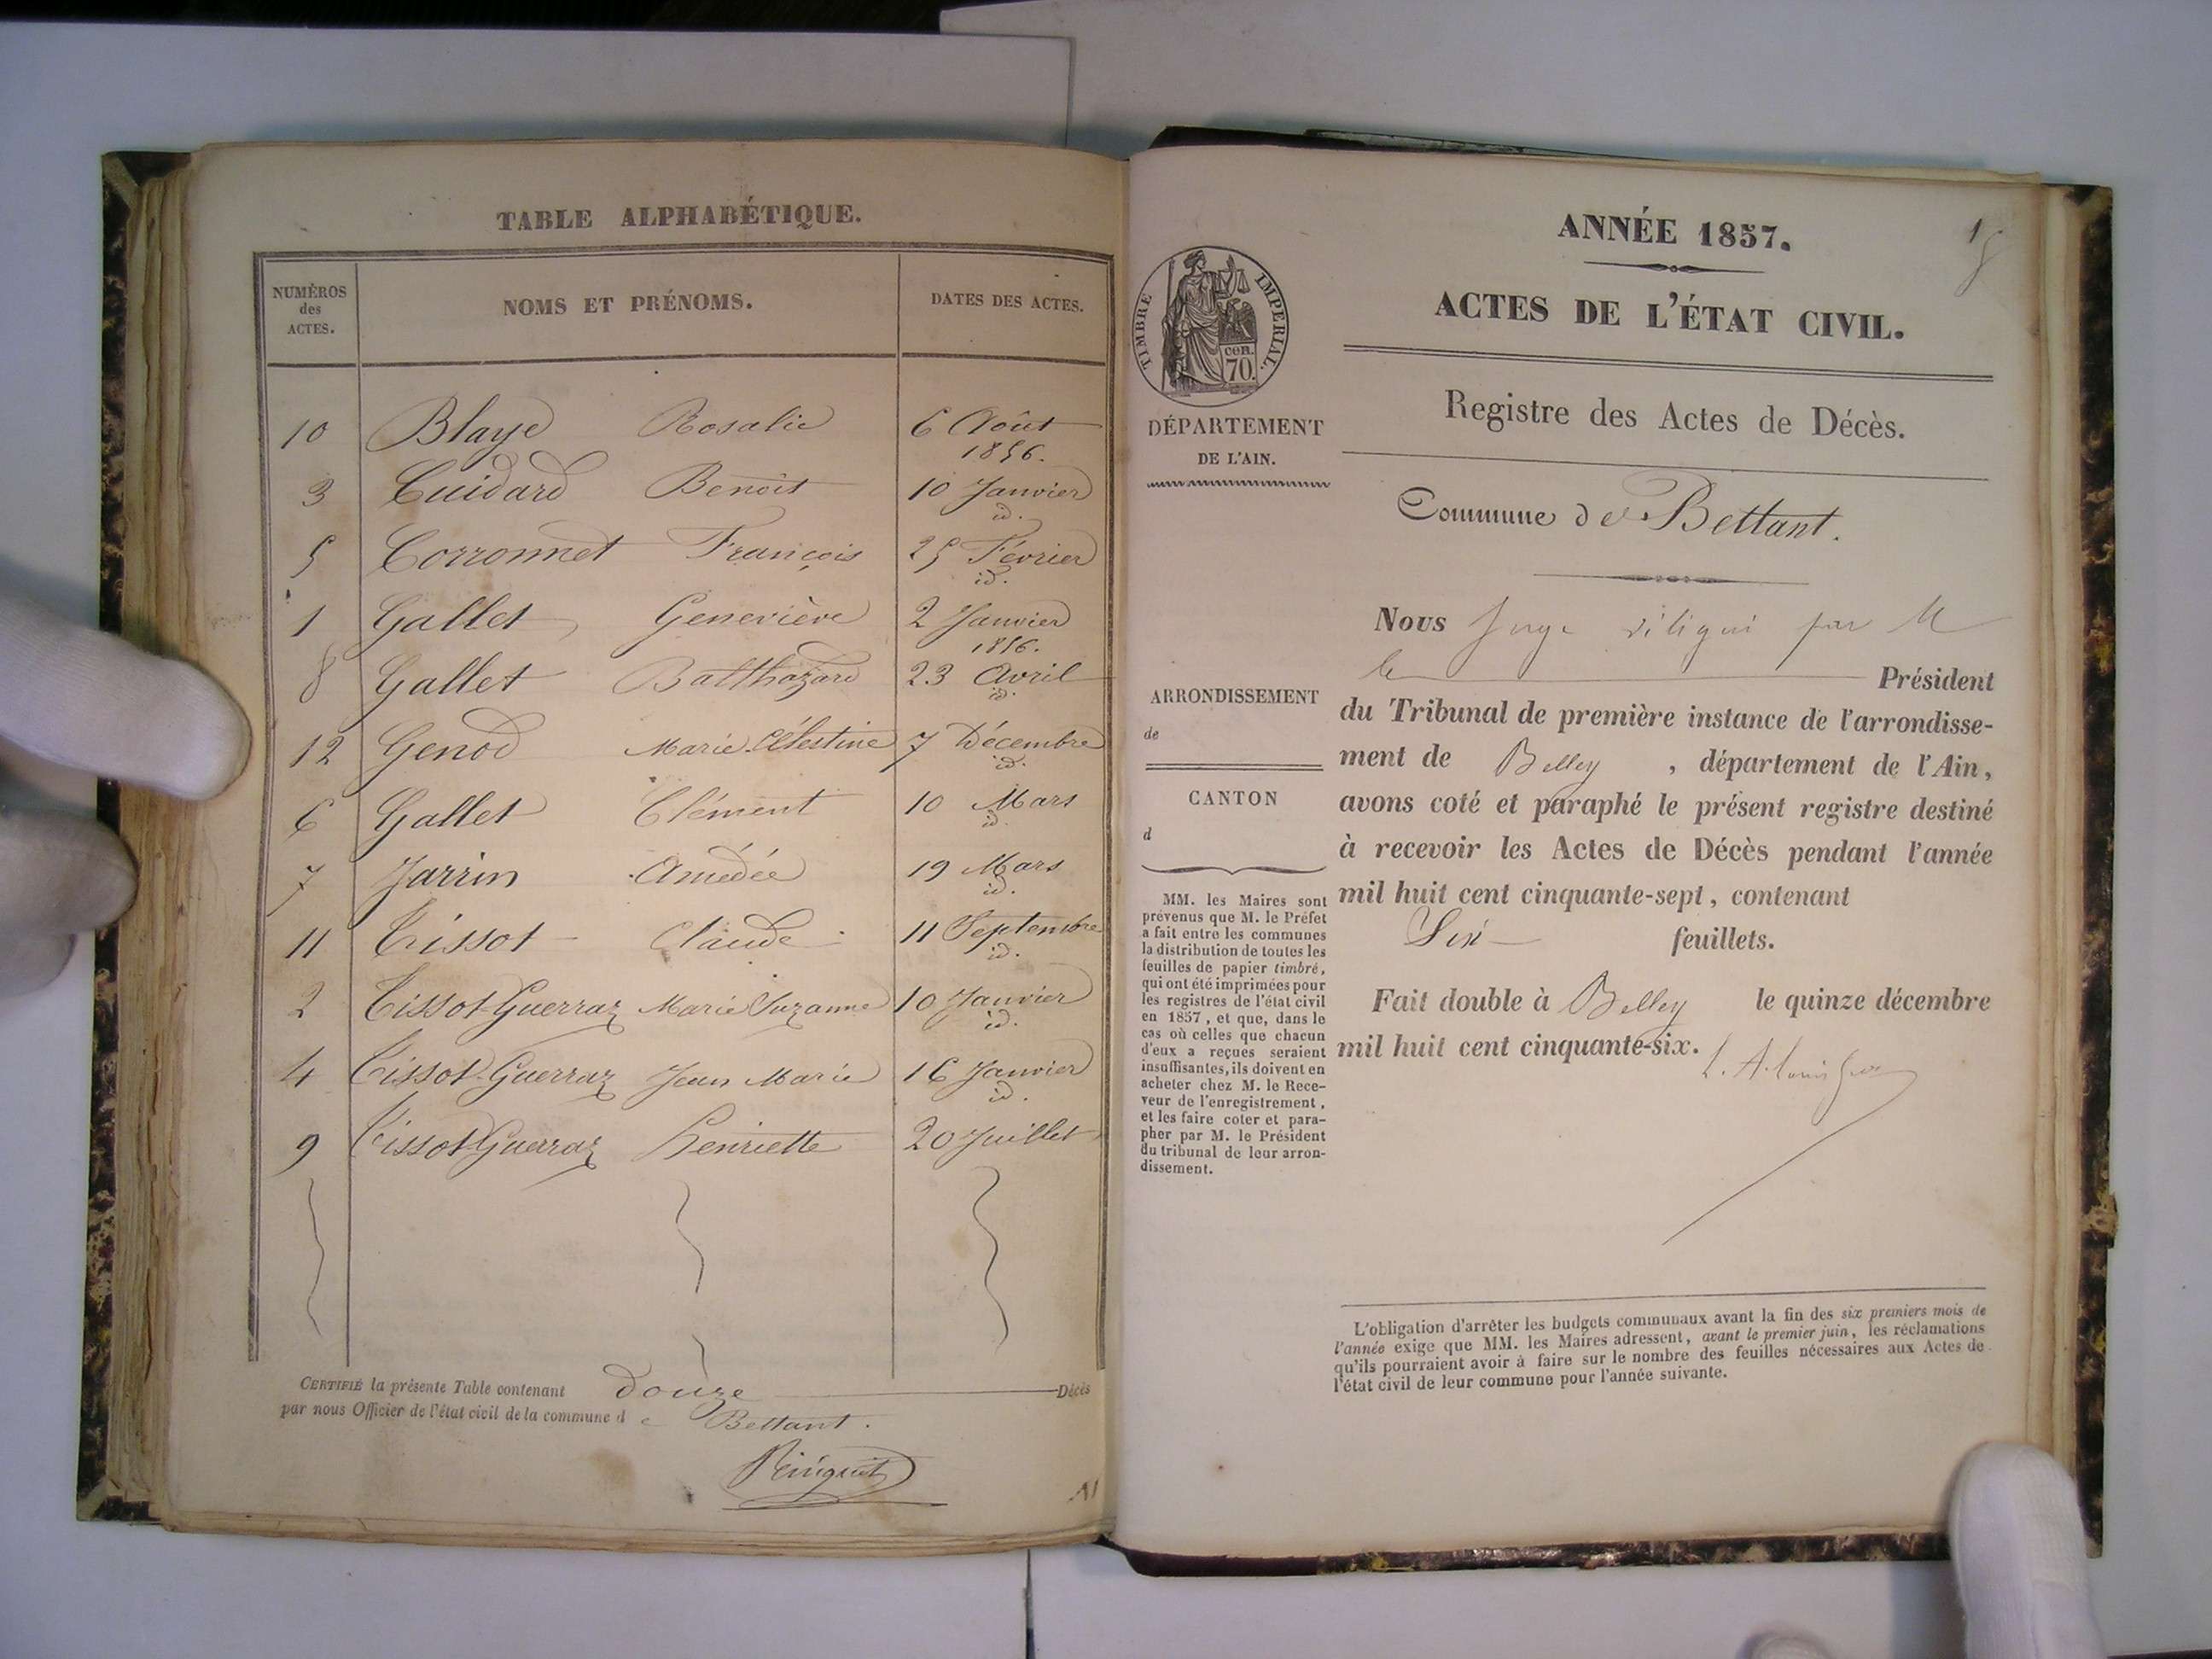 TABLE ALPHABÉTIQUE.
NUMÉROS des ACTES.
NOMS ET PRÉNOMS.
DATES DES ACTES.
10 Blaye Rosalie 6 Août 1856.
3 Cuidard Benoit 10 Janvier id.
5 Corronnet François 25 Février id.
1 Gallet Geneviève 2 Janvier 1856.
8 Gallet Balthazard 23 Avril id.
12 Genod Marie Célestine 7 Décembre id.
6 Gallet Clément 10 Mars id.
7 Jarrin Amédée 19 Mars id.
11 Tissot Claude 11 Septembre id.
2 Tissot-Guerraz Marie Suzanne 10 Janvier id.
4 Tissot-Guerraz Jean Marie 16 Janvier id.
9 Tissot-Guerraz Henriette 20 Juillet
CERTIFIÉ la présente Table contenant douze Décès
par nous Officier de l'état civil de la commune de Bettant.
1
ANNÉE 1857.
TIMBRE IMPERIAL.
CEN. 70.
ACTES DE L'ÉTAT CIVIL.
Registre des Actes de Décès.
DÉPARTEMENT
DE L'AIN.
Commune de Bettant.
Nous Juge délégué par M
le Président
ARRONDISSEMENT
de
CANTON
d
du Tribunal de première instance de l'arrondisse-
ment de Belley, département de l'Ain,
avons coté et paraphé le présent registre destiné
à recevoir les Actes de Décès pendant l'année
mil huit cent cinquante-sept, contenant
Six feuillets.
Fait double à Belley le quinze décembre
mil huit cent cinquante-six.
MM. les Maires sont
prévenus que M. le Préfet
a fait entre les communes
la distribution de toutes les
feuilles de papier timbré,
qui ont été imprimées pour
les registres de l'état civil
en 1857, et que, dans le
cas où celles que chacun
d'eux a reçues seraient
insuffisantes, ils doivent en
acheter chez M. le Rece-
veur de l'enregistrement,
et les faire coter et para-
pher par M. le Président
du tribunal de leur arron-
dissement.
L'obligation d'arrêter les budgets communaux avant la fin des six premiers mois de
l'année exige que MM. les Maires adressent, avant le premier juin, les réclamations
qu'ils pourraient avoir à faire sur le nombre des feuilles nécessaires aux Actes de
l'état civil de leur commune pour l'année suivante.